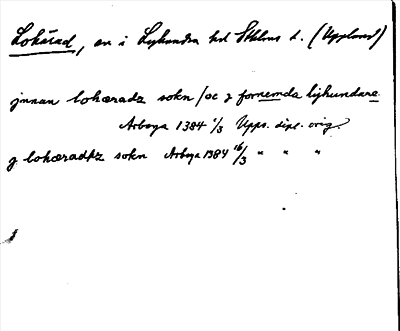 Lohärad, sn i Lyhundra hd Sthlms l. (Uppland)
jnnan lohæradz sokn /oc j fornemda lyhundare
Arboga 1384 1/3 Upps. dipl. orig.
j lohæradhz sokn Arboga 1384 16/3 " " "